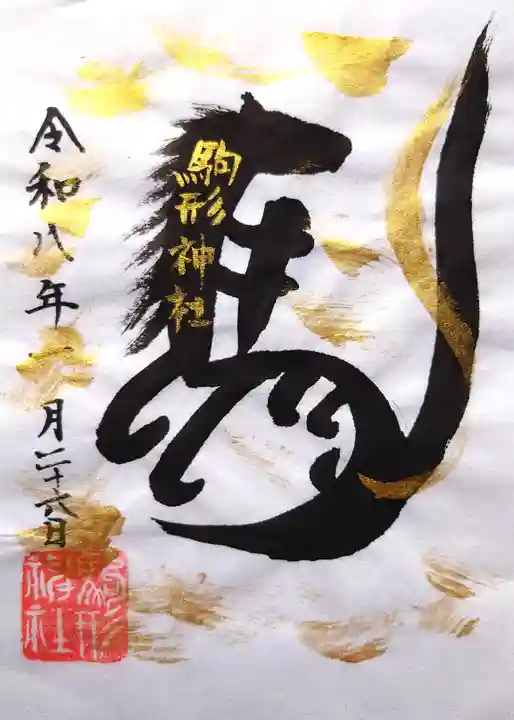 駒形神社
令和八年一月二十六日
駒形神社